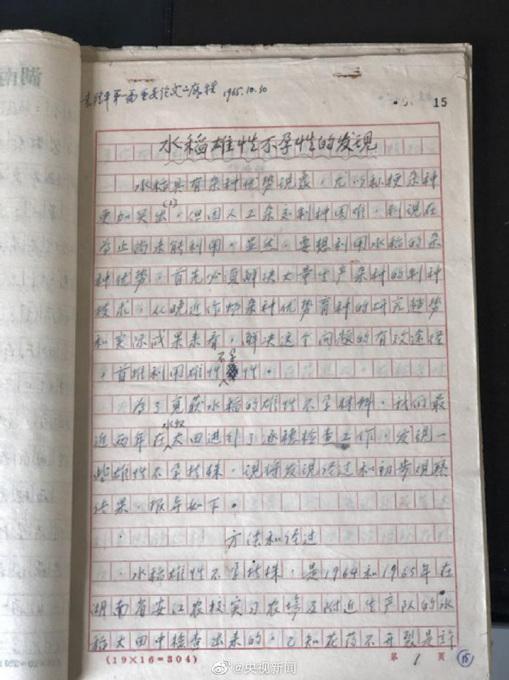 湖南
袁隆平第一篇重要论文二磨樣 1965.10.30
15
水稻雄性不孕性的发现
水稻具有杂种优势现象，尤以籼粳杂种
更加突出(1)，但因人工杂交制种困难，到现在
为止尚未能利用。显然，要想利用水稻的杂
种优势，首先必须解决大量生产杂种的制种
技术，从晚近作物杂种优势育种的研究趋势
和实际成果来看，解决这个问题的有效途径
，首推利用雄性不孕性。
为了觅获水稻的雄性不孕材料，我们最
近两年在水稻大田进行了逐穗检查工作，发现一
些雄性不孕植株，现将发现经过和初步观察
结果，报导如下。
方法和经过
水稻雄性不孕植株，是1964和1965年在
湖南省安江农校实习农场及附近生产队的水
稻大田中检查出来的，已知花药不开裂是许
(19×16=304)
第 1 页
15
@央视新闻